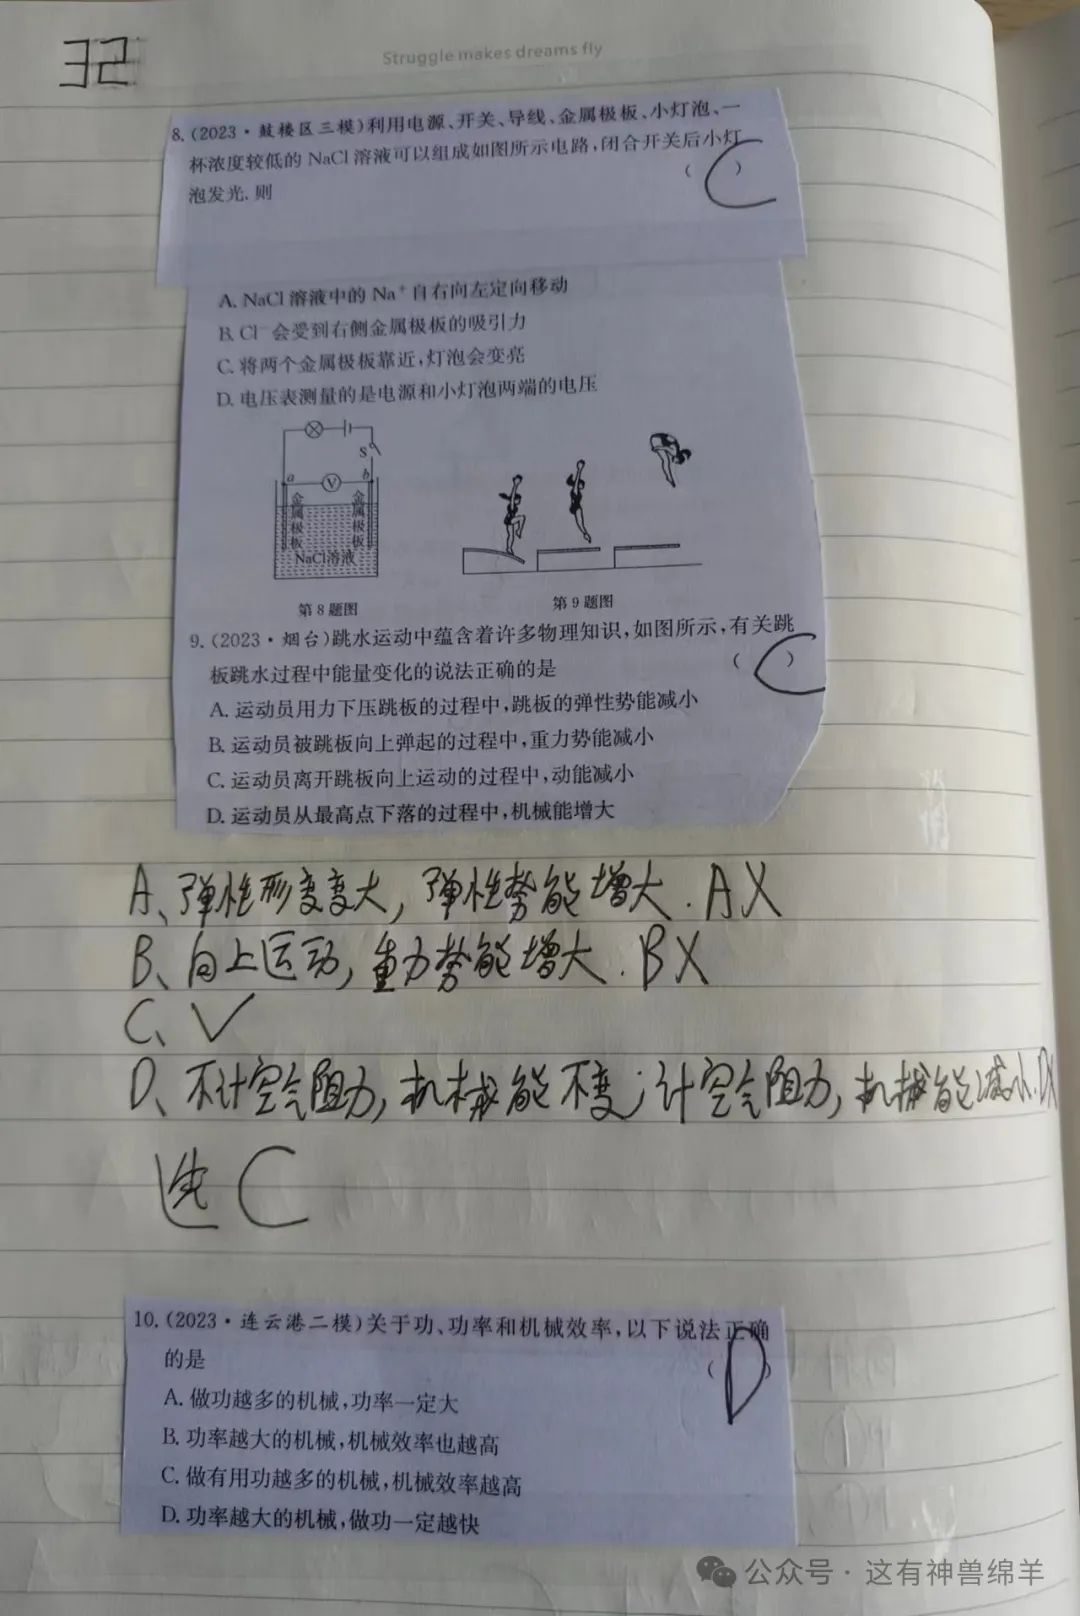 32
Struggle makes dreams fly
8.(2023·鼓楼区三模)利用电源、开关、导线、金属极板、小灯泡、一
杯浓度较低的 NaCl 溶液可以组成如图所示电路,闭合开关后小灯
泡发光.则 ( C )
A. NaCl 溶液中的 Na⁺ 自右向左定向移动
B. Cl⁻ 会受到右侧金属极板的吸引力
C. 将两个金属极板靠近,灯泡会变亮
D. 电压表测量的是电源和小灯泡两端的电压
S
a V b
金属极板 金属极板
NaCl溶液
第 8 题图 第 9 题图
9.(2023·烟台)跳水运动中蕴含着许多物理知识,如图所示,有关跳
板跳水过程中能量变化的说法正确的是 ( C )
A. 运动员用力下压跳板的过程中,跳板的弹性势能减小
B. 运动员被跳板向上弹起的过程中,重力势能减小
C. 运动员离开跳板向上运动的过程中,动能减小
D. 运动员从最高点下落的过程中,机械能增大
A、弹性形变变大,弹性势能增大.A×
B、向上运动,重力势能增大.B×
C、√
D、不计空气阻力,机械能不变;计空气阻力,机械能减小.D×
选 C
10.(2023·连云港二模)关于功、功率和机械效率,以下说法正确
的是 ( D )
A. 做功越多的机械,功率一定大
B. 功率越大的机械,机械效率也越高
C. 做有用功越多的机械,机械效率越高
D. 功率越大的机械,做功一定越快
公众号·这有神兽绵羊